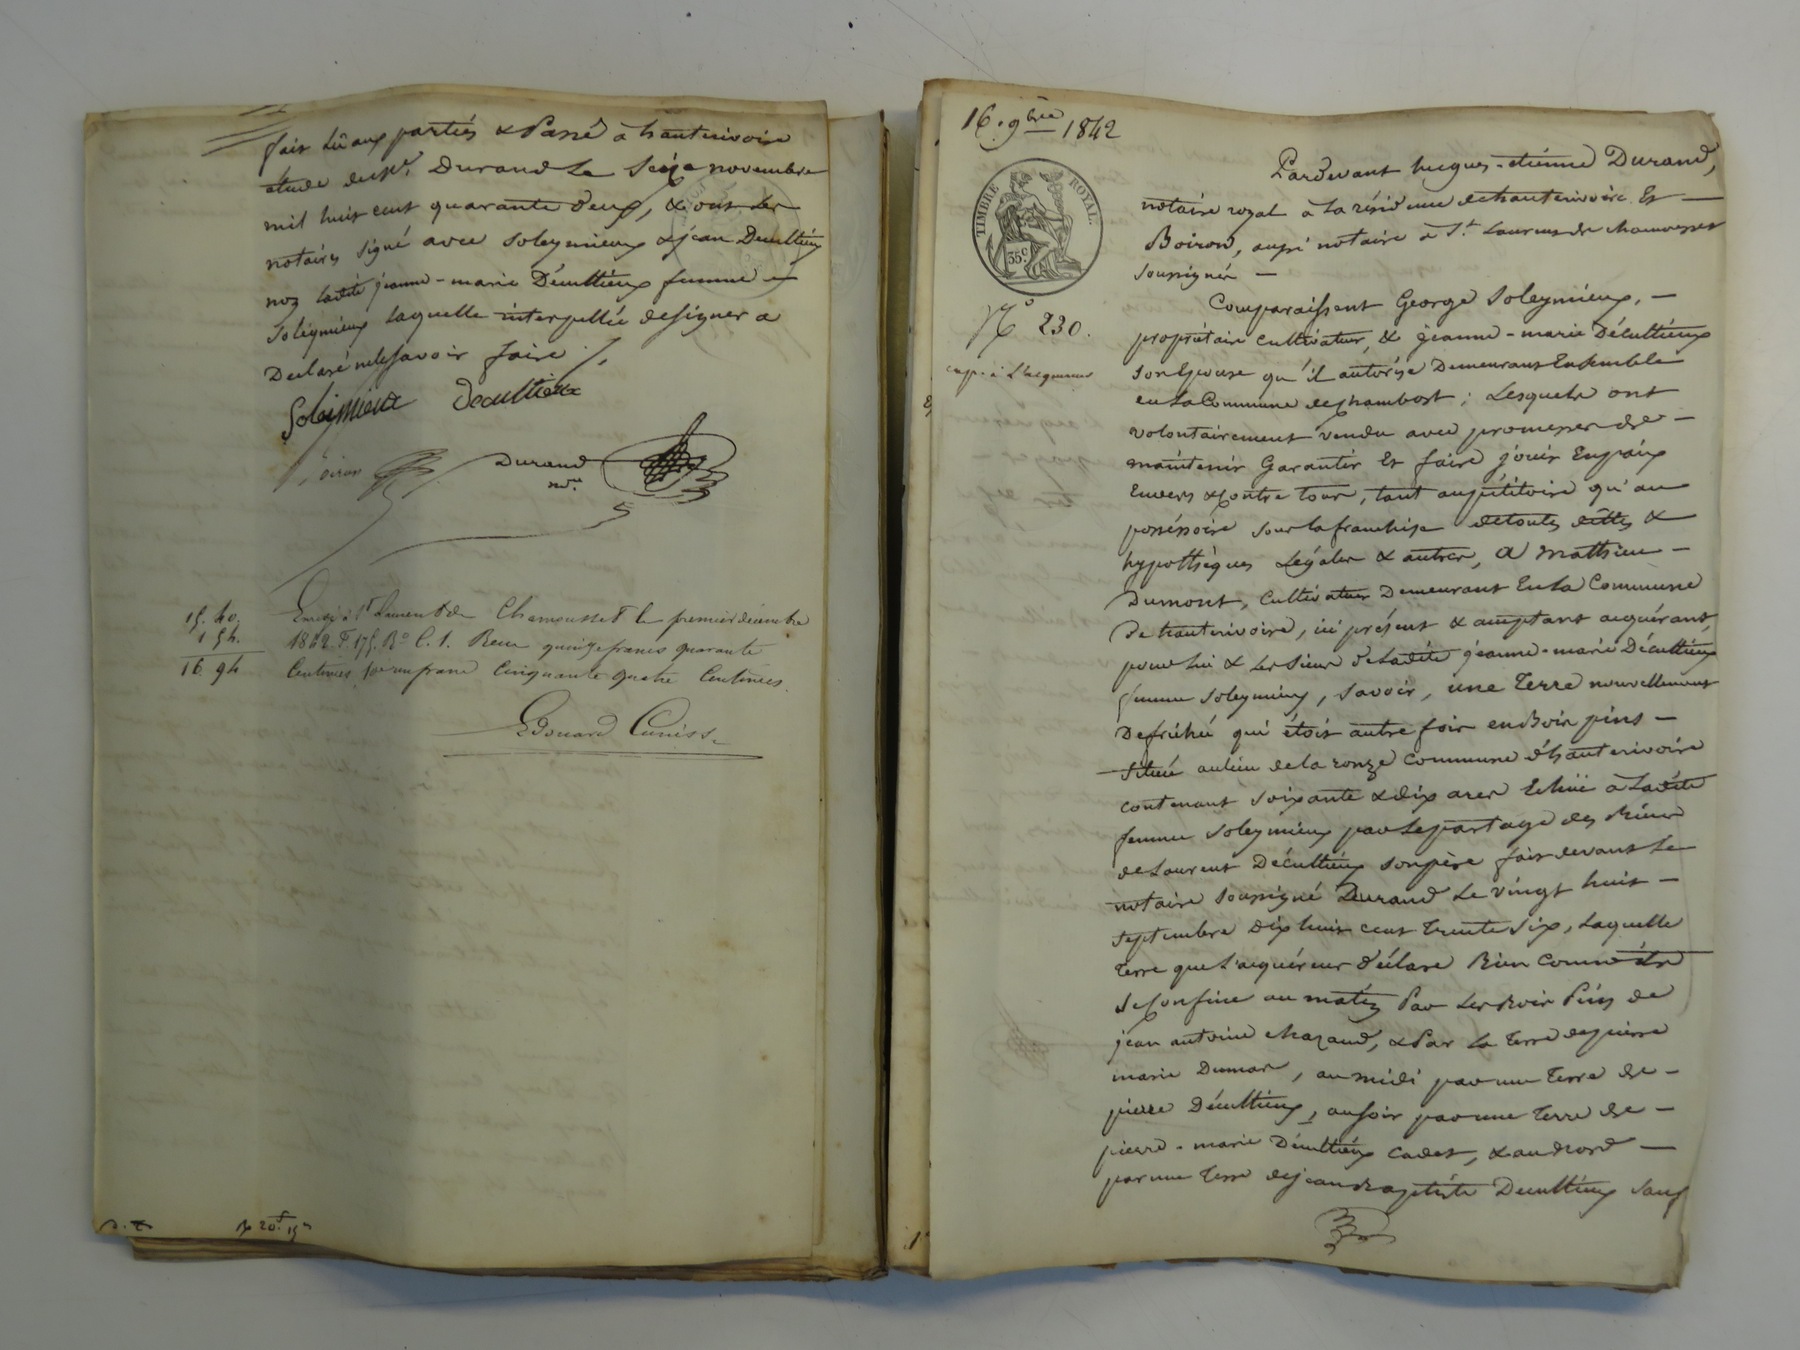 fait lû aux parties & Passé à hauterivoire
étude de Me. Durand Le Seize novembre
mil huit cent quarante deux, & ont Les
notaires signé avec Soleymieux & jean Decultieux
non ladite jeanne-marie Décultieux femme
Soleymieux Laquelle interpellée de signer a
Déclaré ne le savoir faire ./.
Soleymieux Decultieux
Boiron Durand
nre.
15. 40. Enregé à St Laurent de Chamousset le premier décembre
1 54. 1842 F° 175. R° C. 1. Reçu quinze francs quarante
16 94 Centimes pour un franc Cinquante quatre Centimes.
Edouard
20f 15
16. 9bre 1842
Pardevant hugues-etienne Durand,
notaire royal à la résidence de hauterivoire Et
Boiron, aussi notaire à St. Laurent de chamousset
soussignés
TIMBRE ROYAL.
35c.
N° 230.
exp. à L'acquéreur
Comparaissent George Soleymieux,
propriétaire cultivateur, & jeanne-marie Décultieux
son Epouse qu'il autorise Demeurant Ensemble
en la Commune de chambost; Lesquels ont
volontairement vendu avec promesses de
maintenir Garantir Et faire jouir En paix
Envers & contre tous, tant au pétitoire qu'au
possessoire sous la franchise de toutes dettes &
hypothèques Légales & autres, a Mathieu
Dumont, Cultivateur Demeurant En la Commune
De hauterivoire, ici présent & acceptant acquérant,
pour lui & les siens de Ladite jeanne-marie Décultieux
femme Soleymieux, savoir, une Terre nouvellement
Défrichée qui étoit autre fois en Bois pins
située au lieu de la ronze Commune d'hauterivoire
contenant soixante & dix ares Echue à Ladite
femme Soleymieux par Le partage des Biens
de Laurent Décultieux son père fait devant Le
notaire soussigné Durand Le vingt huit
septembre Dix huit cent Trente Six, Laquelle
Terre que L'acquéreur déclare Bien Connoitre
se Confine au matin Par Les Bois Pins de
jean antoine chazaud, & Par la Terre de pierre
marie Dumas, au midi par une Terre de
pierre Décultieux, au soir par une Terre de
pierre-marie Décultieux Cadet, & au nord
par une Terre de jean Baptiste Decultieux sauf